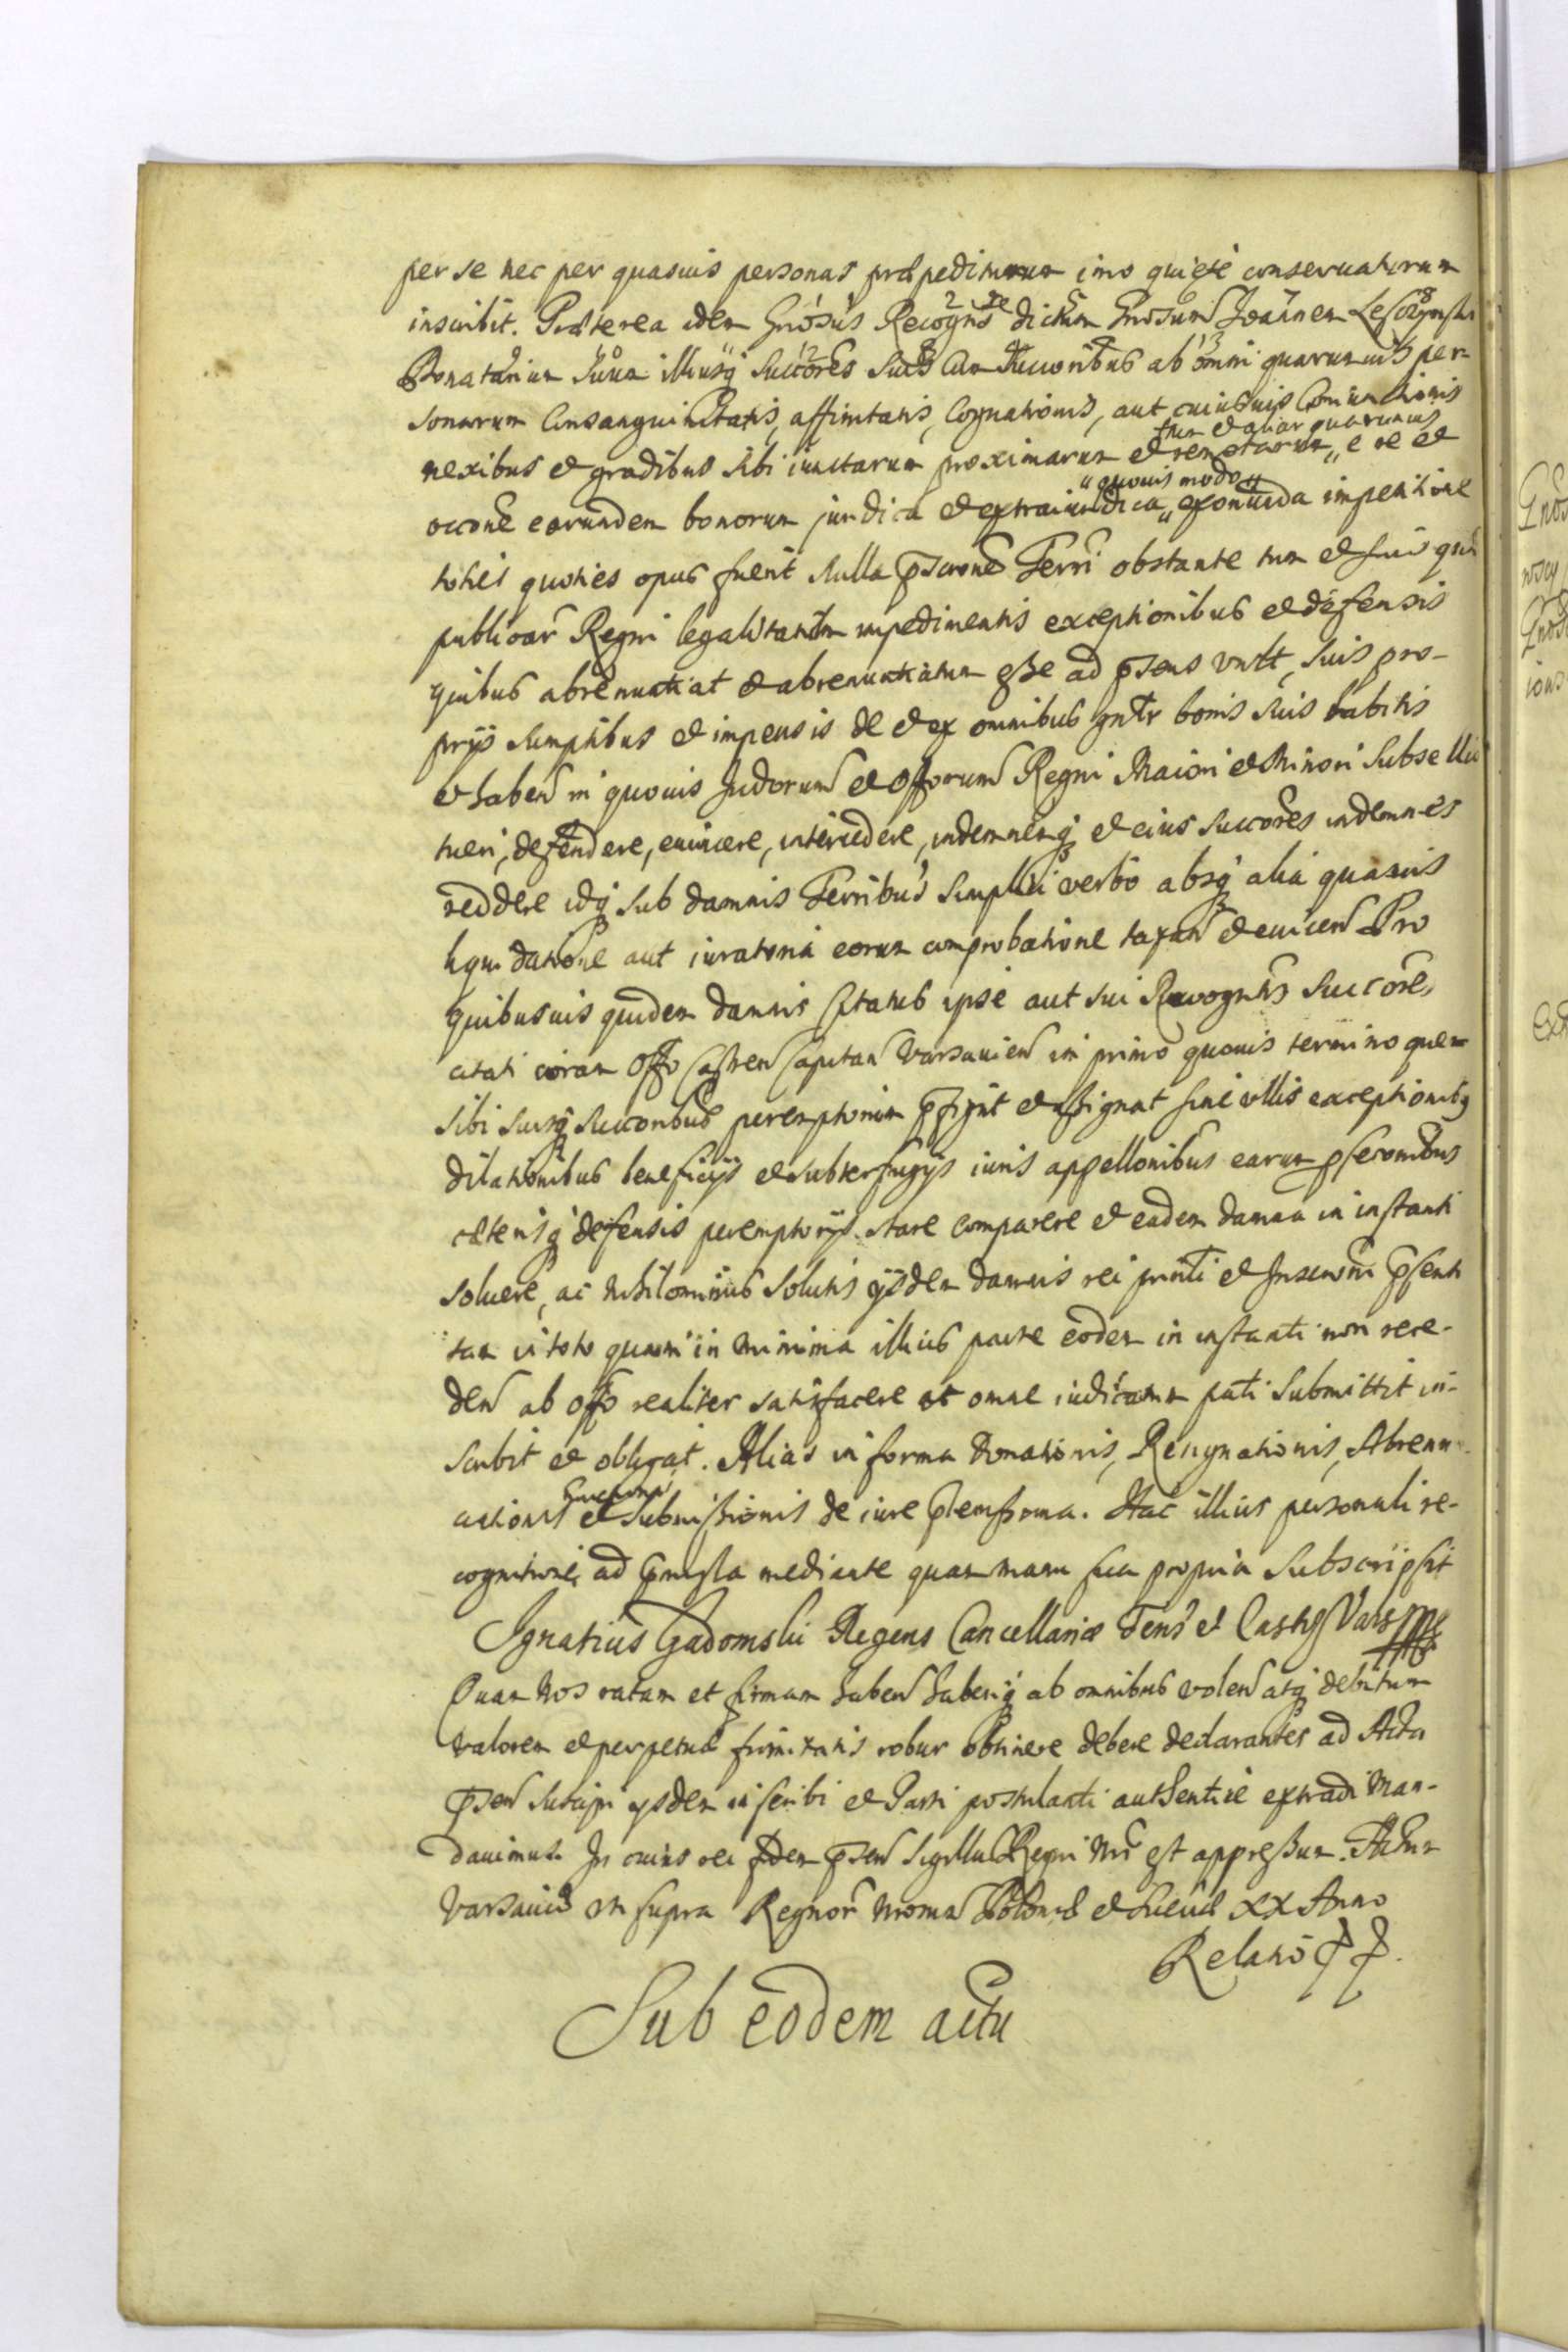 per se nec per quasuis personas præpediturum imo quietè conseruaturum
inscribit. Præterea idem Gnosus Recogns dictum Gnosum Joannem Leszczynski
Donatarium suum illiusq succores suis cum succoribus ab omni quarumuis per-
sonarum Consanguinitatis, affinitatis, Cognationis, aut cuiusuis Coniunctionis
tum et aliar quarumuis
nexibus et gradibus sibi iunctarum proximarum et remotarum " e re et
" quouis modo "
occone eorundem bonorum juridica et extraiuridica " exomuda impetitione
toties quoties opus fuerit nulla pscrione Terri obstante tum et suis
publicar Regni legalitatum impedimentis exceptionibus et defensis
quibus abrenuntiat et abrenuntiatum esse ad psens vult, suis pro-
prijs sumptibus et impensis de et ex omnibus gnlr bonis suis habitis
et haben in quouis Judiorum et Offorum Regni Maiori et Minori Subsellio
tueri, defendere, euincere, intercedere, indemnemq et eius succores indemnes
reddere idq sub damnis Terribus simplici verbo absq alia quauis
liquidatione aut iuratoria eorum comprobatione taxan et euincen Pro
quibusuis quidem damnis Citatus ipse aut sui Recognitis succores
citati coram Offo Castren Capitan Varsauien in primo quouis termino quem
sibi suisq succoribus peremptorium pfigit et assignat sine vllis exceptionibq
dilationibus beneficijs et subterfugijs iuris appellonibus earum psecronibus
cæterisq defensis peremptorijs stare comparere et eadem damna in instanti
soluere, ac nihilominus solutis ijsdem damnis rei prnti et Inscroni psenti
tam in toto quam in minima illius parte eodem in instanti non rece-
den ab offo realiter satisfacere et omne iudicatum pati submittit in-
scribit et obligat. Alias in forma Donationis, Resignationis, Abrenun-
ciationis et Submissionis de iure plenissoma. Hac illius personali re-
cognitione ad pmissa mediante quam manu sua propria subscripsit
Ignatius Gadomski Regens Cancellariæ Tens et Castr Vars mp
Quam Nos ratam et firmam haben haberiq ab omnibus volen atq debitum
valorem et perpetuæ firmitatis robur obtinere debere declarantes ad Acta
psen suscipi ijsdem inscribi et Parti postulanti authenticè extradi Man-
dauimus. In cuius rei fidem psen Sigillum Regni Nri est appressum. Actum
Varsauiæ ut supra Regnor Nrorum Poloniæ et Sueciæ XX Anno
Relatio
Sub eodem actu